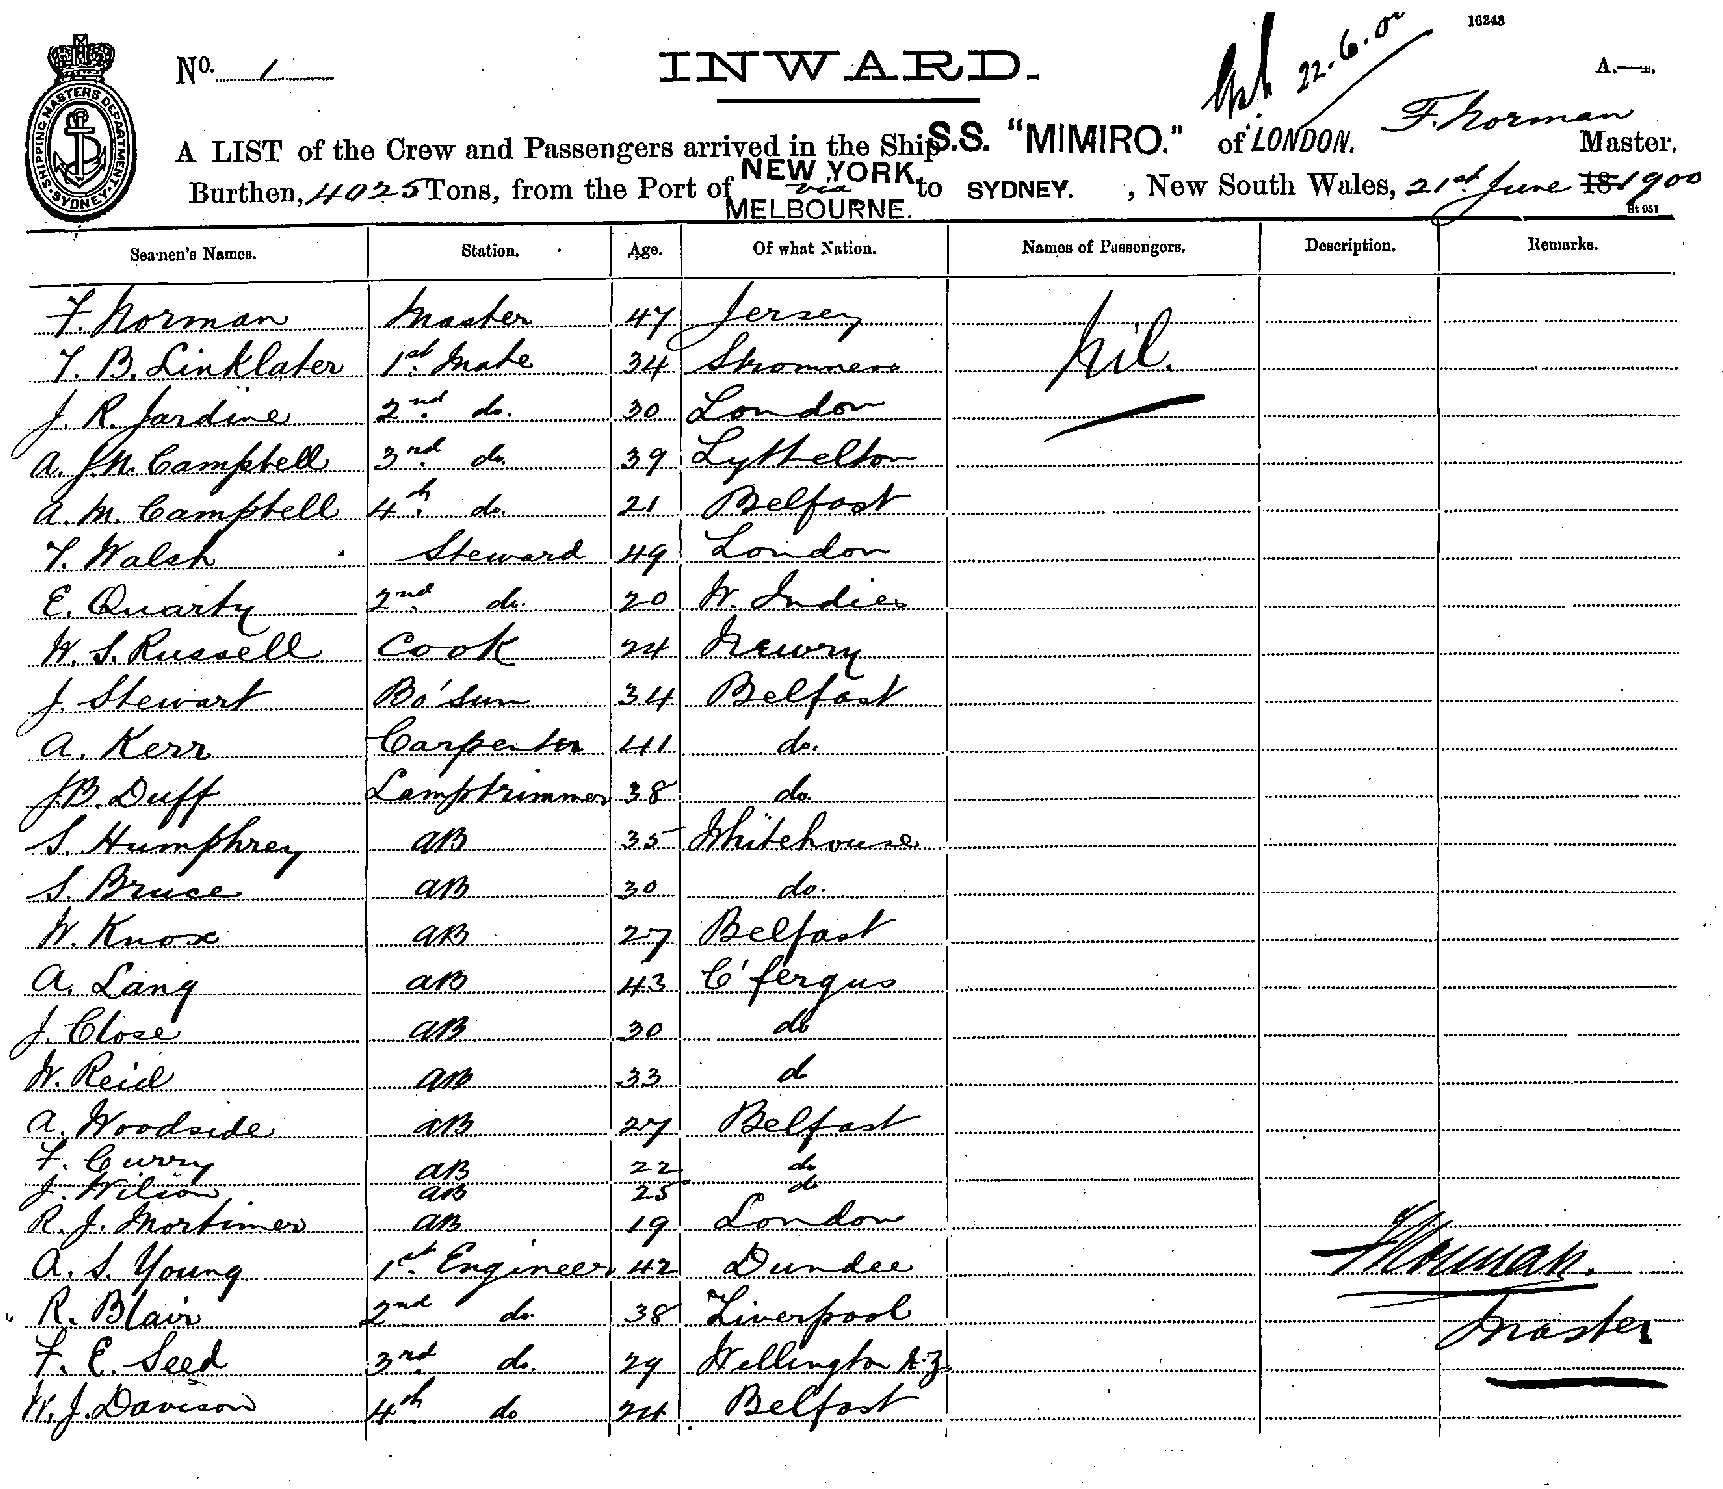 16243
No. 1
INWARD.
22.6.00
A.—.
F. Norman
A LIST of the Crew and Passengers arrived in the Ship S.S. "MIMIRO." of LONDON. Master,
Burthen, 4025 Tons, from the Port of NEW YORK via MELBOURNE. to SYDNEY. , New South Wales, 21st June 18 1900
SHIPPING MASTERS DEPARTMENT SYDNEY
Seamen's Names. Station. Age. Of what Nation. Names of Passengers. Description. Remarks.
F. Norman Master 47 Jersey Nil.
F. B. Linklater 1st Mate 34 Stromness
J. R. Jardine 2nd do. 30 London
A. J. N. Campbell 3rd do. 39 Lyttelton
A. M. Campbell 4th do. 21 Belfast
F. Walsh Steward 49 London
E. Quarty 2nd do. 20 W. Indies
W. S. Russell Cook 24 Newry
J. Stewart Bo'sun 34 Belfast
A. Kerr Carpenter 41 do.
J. B. Duff Lamptrimmer 38 do.
S. Humphrey AB 35 Whitehouse
S. Bruce AB 30 do.
W. Knox AB 27 Belfast
A. Lang AB 43 C'fergus
J. Close AB 30 do
W. Reid AB 33 d
A. Woodside AB 27 Belfast
F. Curry AB 22 do
J. Wilson AB 25 do
R. J. Mortimer AB 19 London
A. S. Young 1st Engineer 42 Dundee F Norman.
R. Blair 2nd do. 38 Liverpool Master
F. E. Seed 3rd do. 29 Wellington N.Z.
W. J. Davison 4th do 24 Belfast